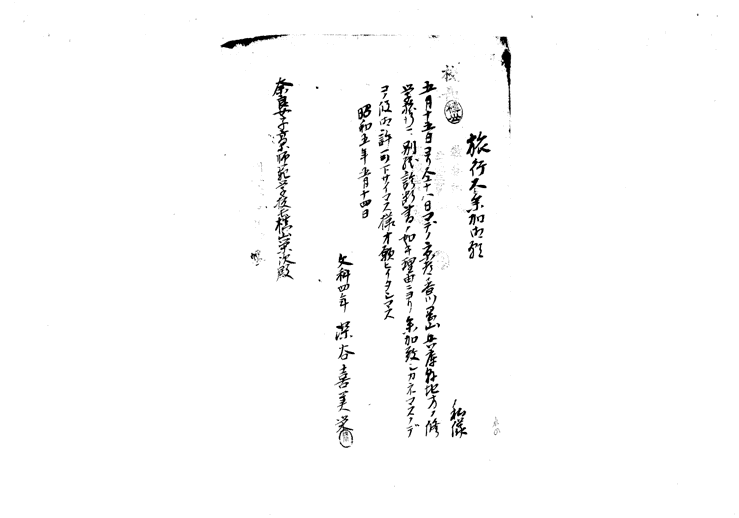 旅行不参加御願
私儀
五月十五日ヨリ仝十八日マデノ京都香川岡山兵庫縣地方ノ修
学旅行ニ別紙診断書ノ如キ理由ニヨリ参加致シカネマスノデ
コノ段御許可下サイマス様オ願ヒイタシマス
昭和五年五月十四日
文科四年 深谷喜美栄
奈良女子高等師範学校長槇山栄次殿